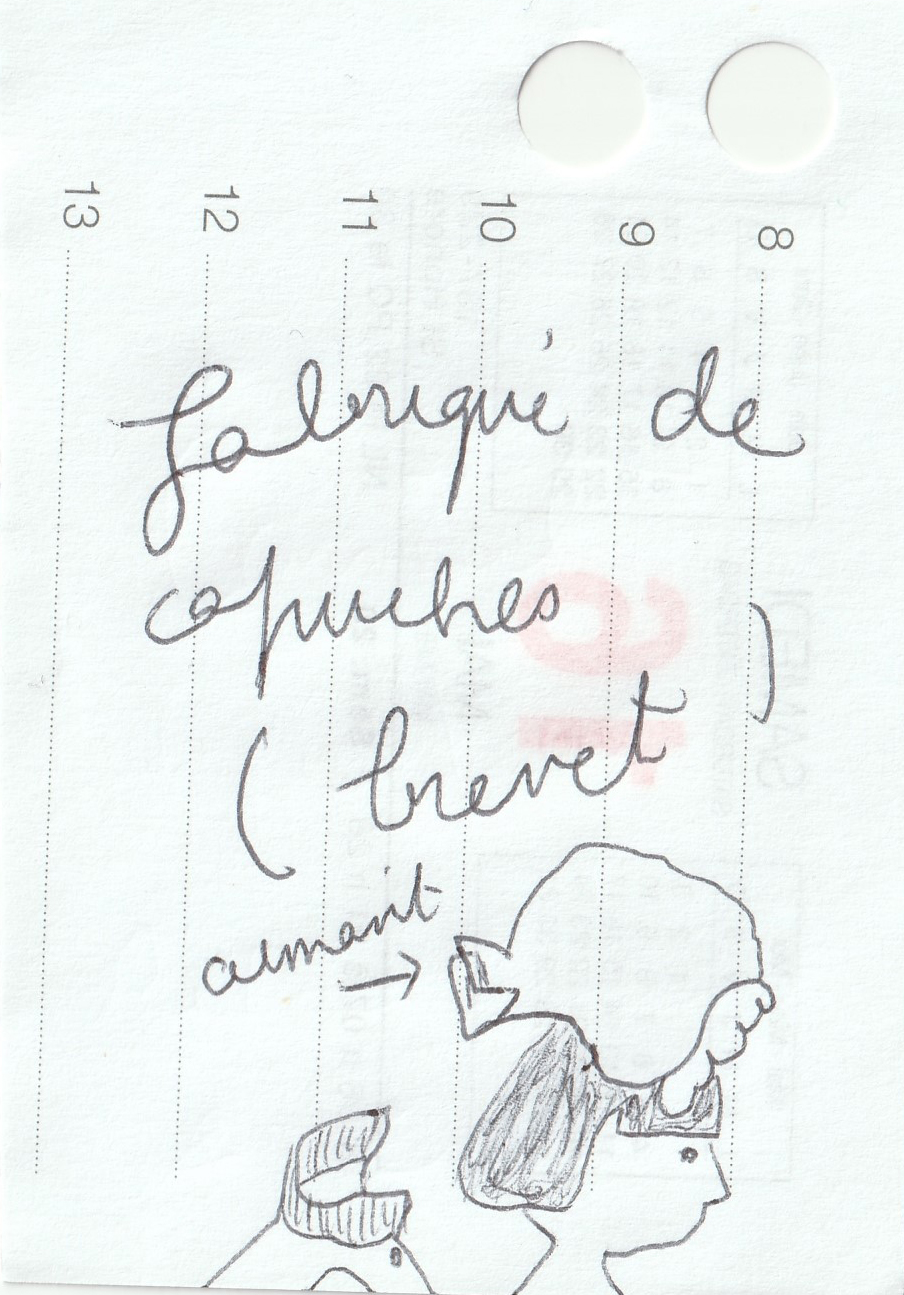 13 12 11 10 9 8
fabriqué de
capuches
( brevet )
aimant →